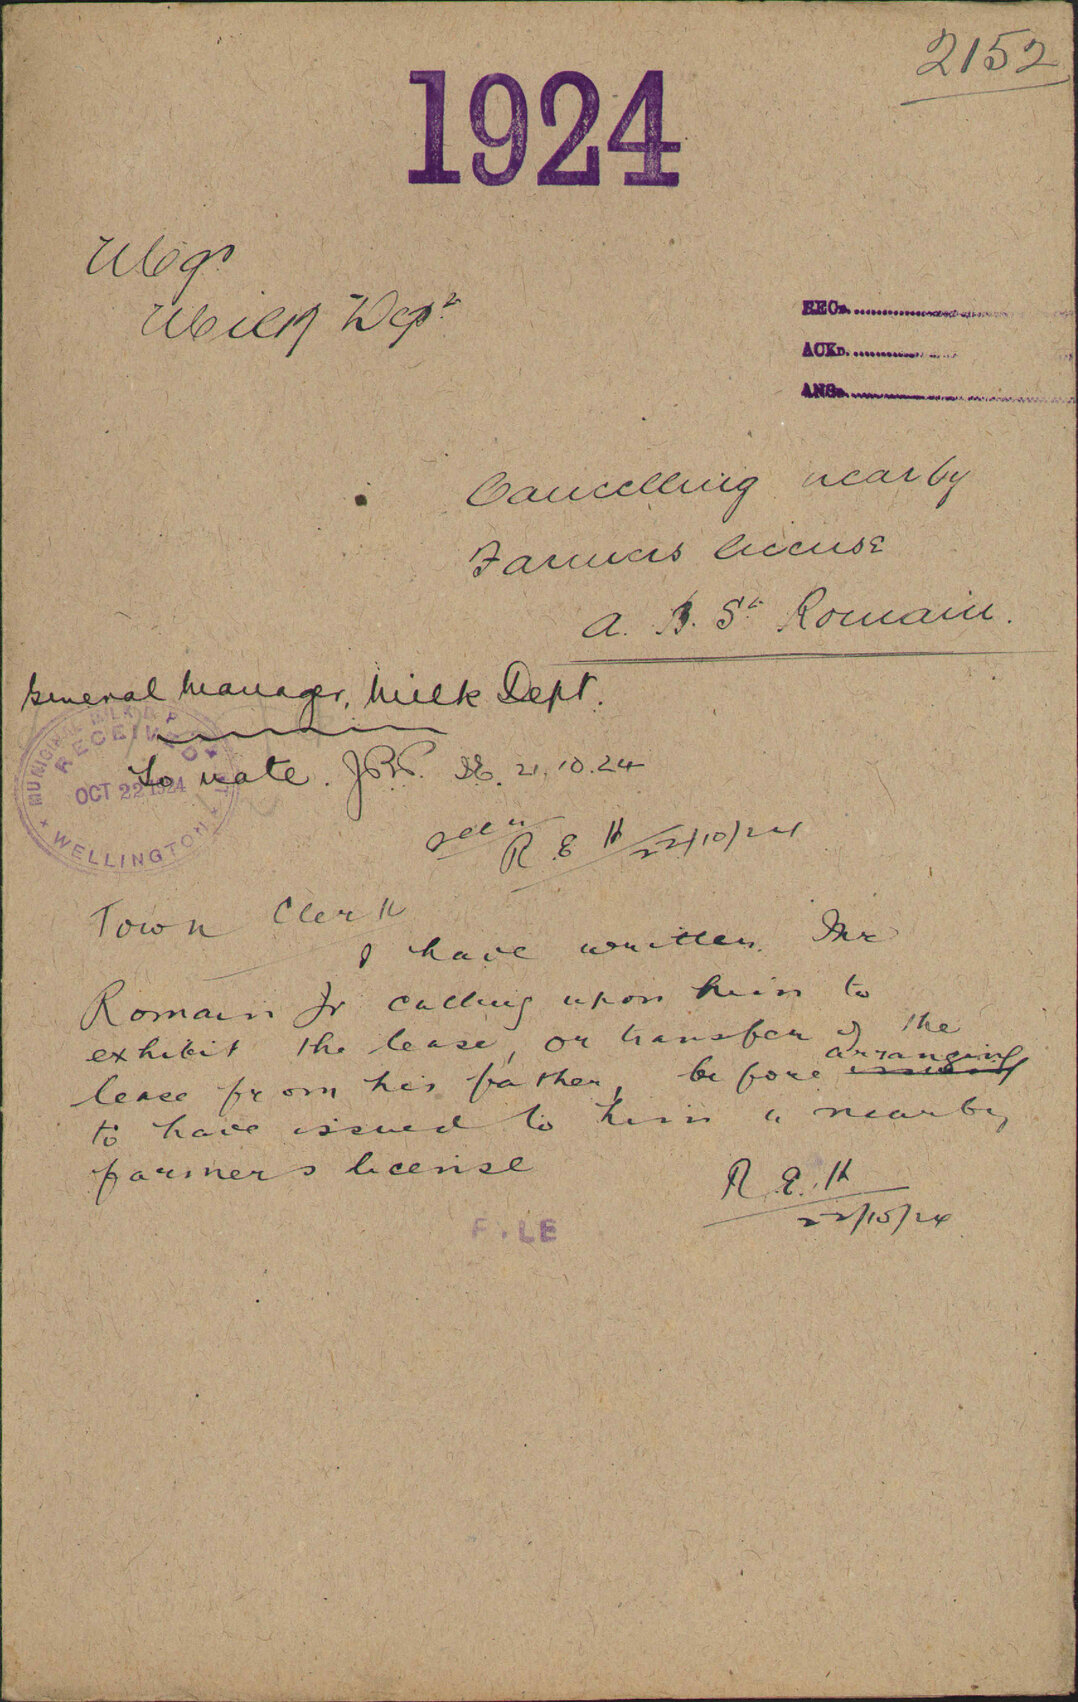 2152
1924
Mgr
Milk Dept
RECD.
ACKD.
ANSD.
Cancelling nearby
Farmers license
A. B. St Romain.
General Manager, Milk Dept.
MUNICIPAL MILK DEPT
RECEIVED
OCT 22 1924
WELLINGTON
To note. 21.10.24
seen
R E H 22/10/24
Town Clerk
I have written Mr
Romain Jr calling upon him to
exhibit the lease, or transfer of the
lease from his father, before arranging
to have issued to him a nearby
farmers license
R. E. H
22/10/24
FILE